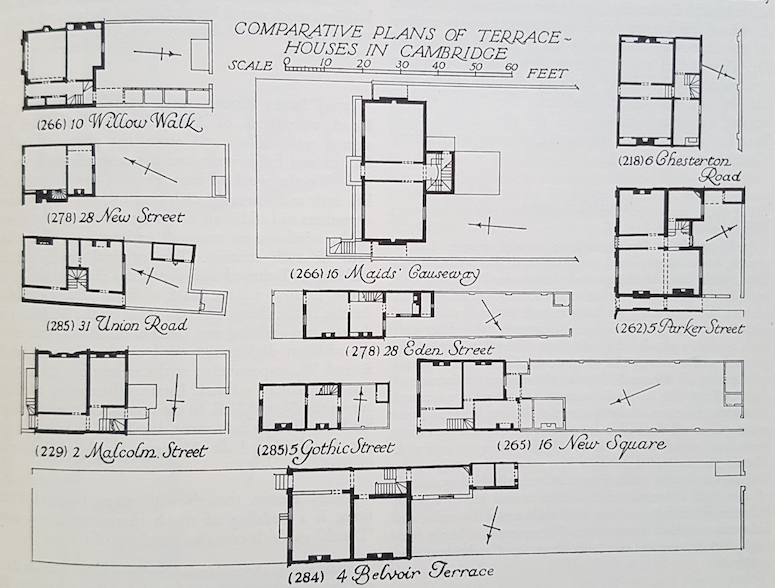 COMPARATIVE PLANS OF TERRACE-
HOUSES IN CAMBRIDGE
SCALE 0 10 20 30 40 50 60 FEET
(266) 10 Willow Walk
(218) 6 Chesterton
Road
(278) 28 New Street
(266) 16 Maids' Causeway
(285) 31 Union Road
(262) 5 Parker Street
(278) 28 Eden Street
(229) 2 Malcolm Street
(285) 5 Gothic Street
(265) 16 New Square
(284) 4 Belvoir Terrace